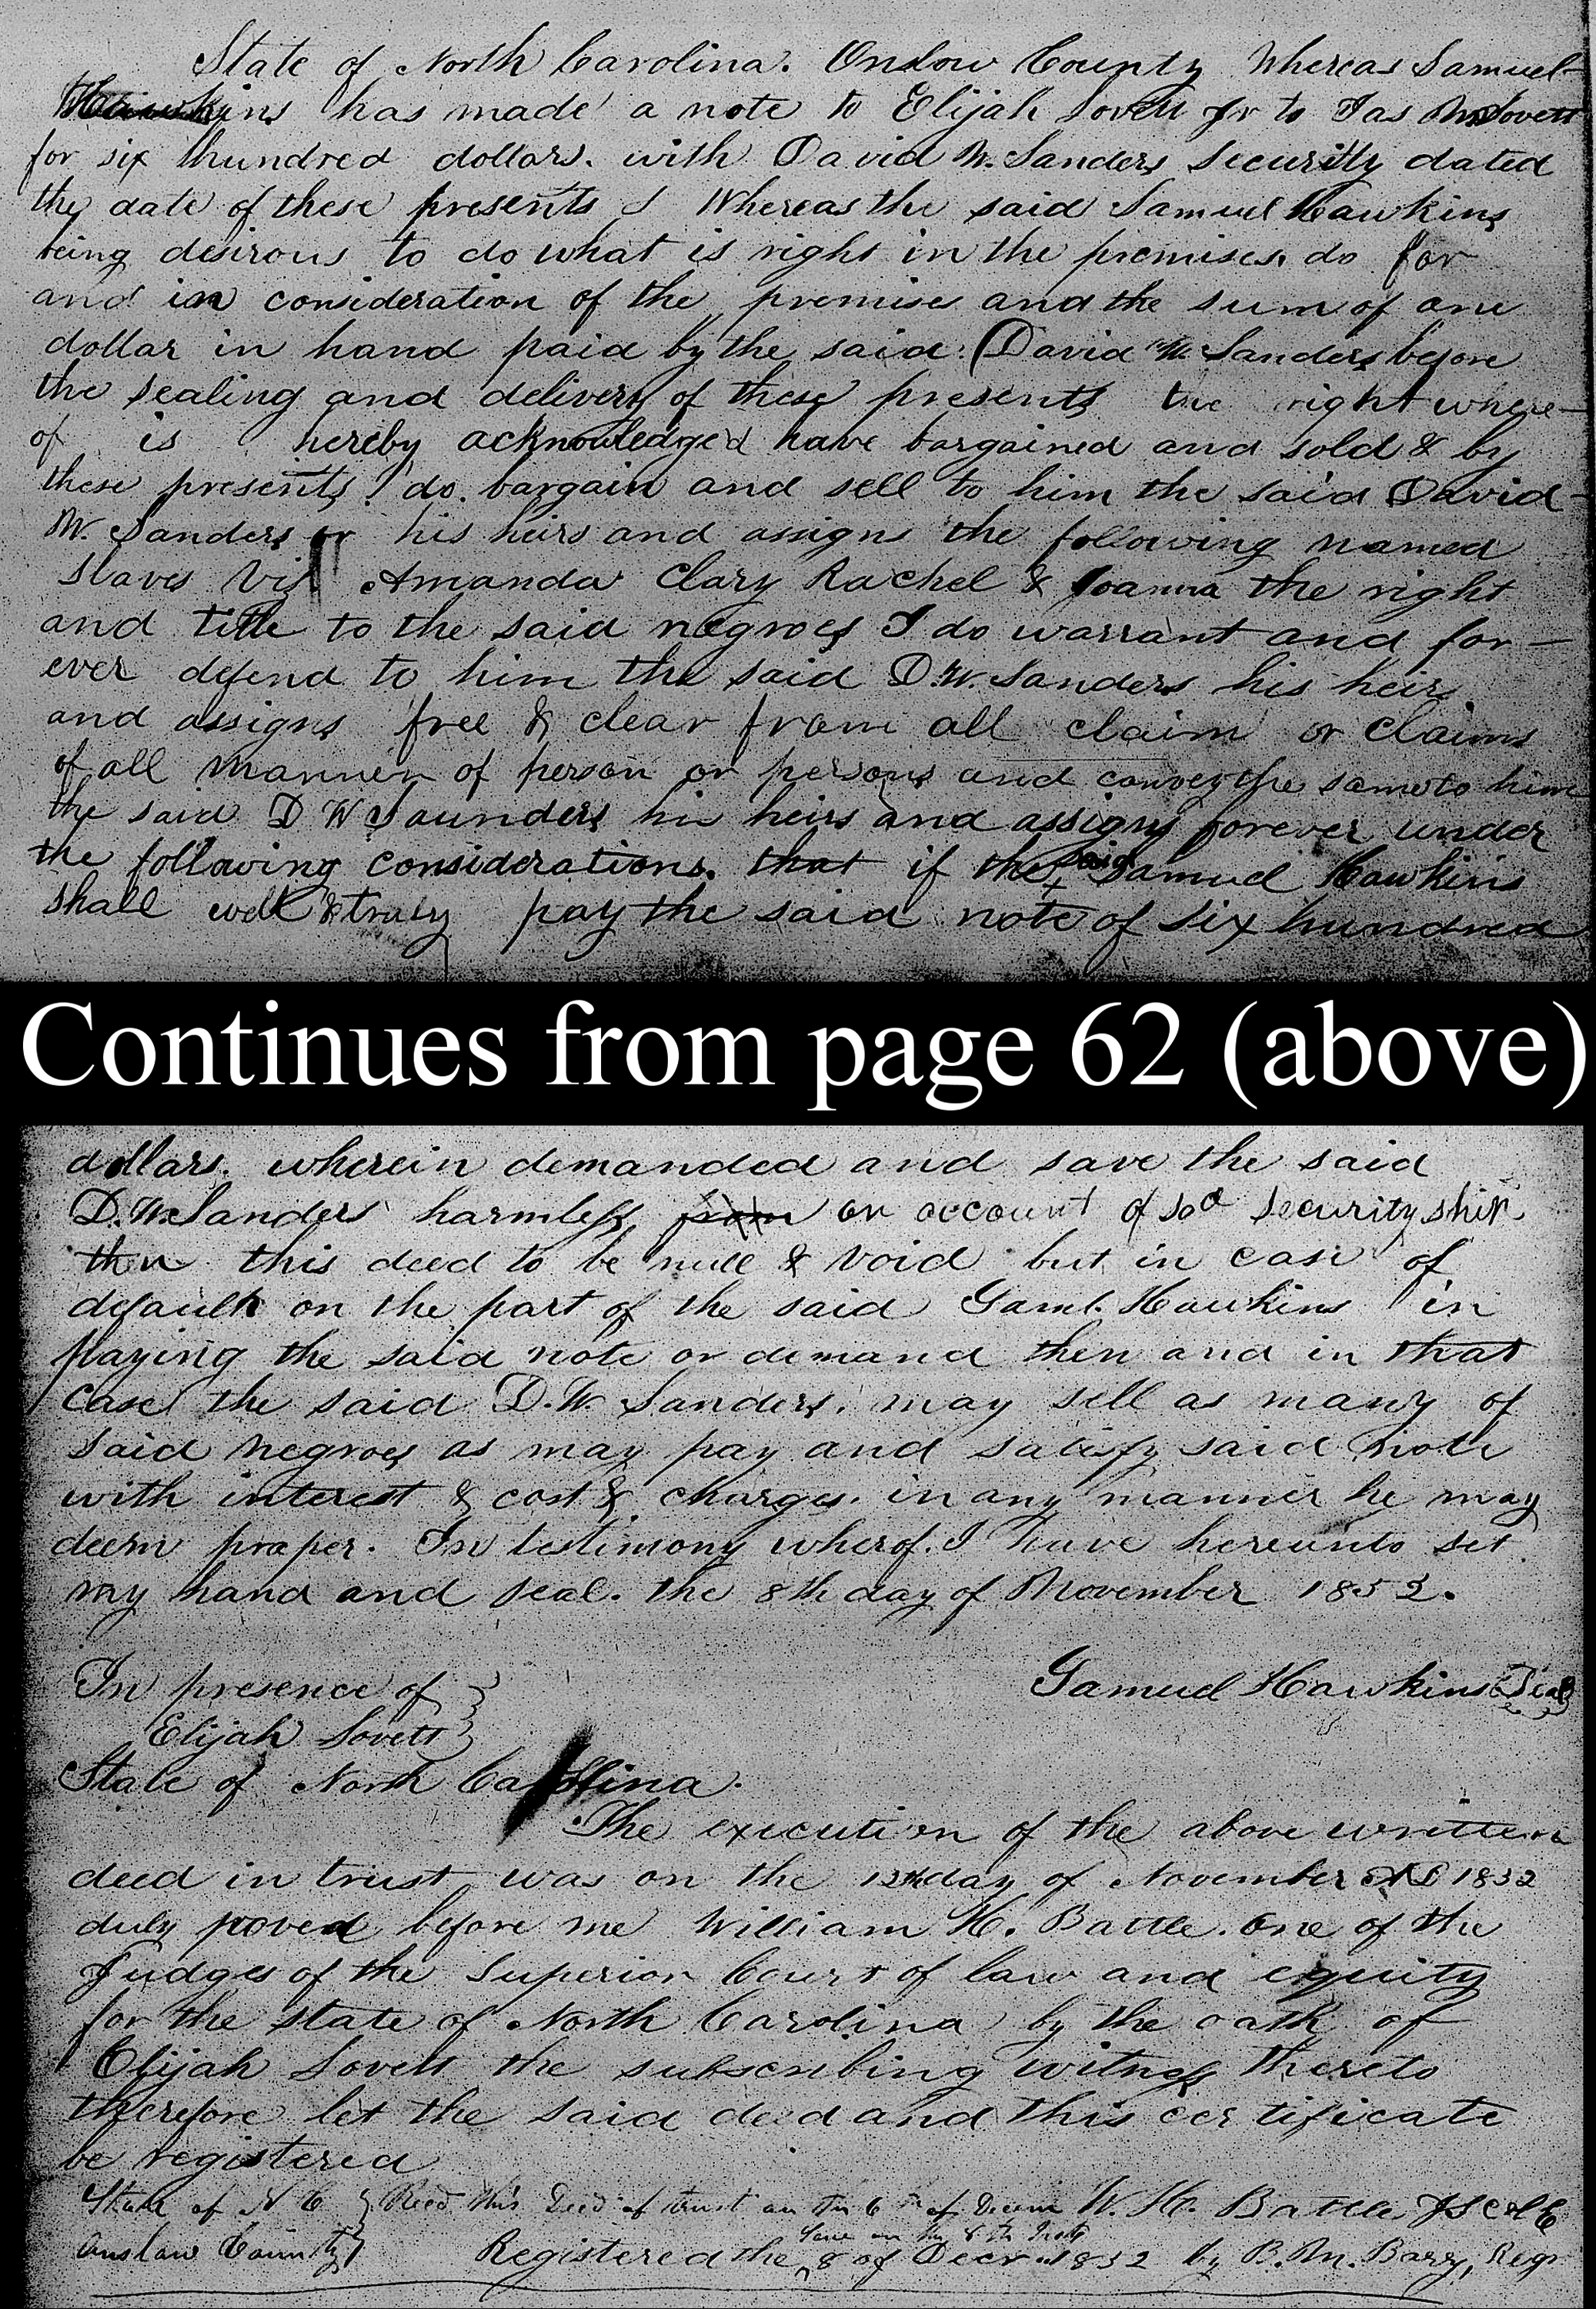 State of North Carolina. Onslow County Whereas Samuel
Hawkins has made a note to Elijah Lovett Jr to Jas M Lovett
for six hundred dollars. with David W. Sanders security dated
the date of these presents & Whereas the said Samuel Hawkins
being desirous to do what is right in the premises. do for
and in consideration of the premise and the sum of one
dollar in hand paid by the said David W. Sanders before
the sealing and delivery of these presents the right where-
of is hereby acknowledged have bargained and sold & by
these presents do. bargain and sell to him the said David
W. Sanders or his heirs and assigns the following named
slaves Viz Amanda Clary Rachel & Joanna the right
and title to the said negroes I do warrant and for-
ever defend to him the said D.W. Sanders his heirs
and assigns free & clear from all claim or claims
of all manner of person or persons and convey the same to him
the said D W Saunders his heirs and assigns forever under
the following considerations. that if the said Samuel Hawkins
shall well & truly pay the said note of six hundred
Continues from page 62 (above)
dollars. wherein demanded and save the said
D.W. Sanders harmless, from on account of sad securityship
then this deed to be null & void but in case of
default on the part of the said Saml. Hawkins in
paying the said note or demand then and in that
case the said D.W. Sanders. may sell as many of
said negroes as may pay and satisfy said note
with interest & cost & charges. in any manner he may
deem proper. In testimony wherof. I have hereunto set
my hand and seal. the 8th day of November 1852.
Samuel Hawkins Seal
In presence of
Elijah Lovett
State of North Carolina.
The execution of the above written
deed in trust was on the 12th day of November AD 1852
duly poved before me William H. Battle. One of the
Judges of the Superior Court of law and equity
for the state of North Carolina by the oath of
Elijah Lovett the subscribing witness thereto
therefore let the said deed and this certificate
be registered
W. H. Battle J S C L E
State of N C } Recd this Deed of trust on the 6th of Decem
Onslow County } Registered the 8 of Decr. 1852 by B. M. Barry, Regr